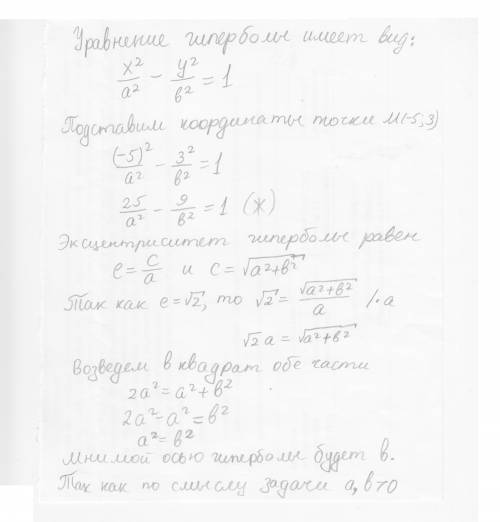 Уравнение гиперболы имеет вид:
x²/a² − y²/в² = 1
Подставим координаты точки M(-5,3)
(-5)²/a² − 3²/в² = 1
25/a² − 9/в² = 1 (ж)
Эксцентриситет гиперболы равен
e = c/a и c = √(a²+в²)
Так как e = √2, то √2 = √(a²+в²)/a /·a
√2 a = √(a²+в²)
Возведем в квадрат обе части
2a² = a² + в²
2a² − a² = в²
a² = в²
мнимой осью гиперболы будет в.
Так как по смыслу задачи a, в>0